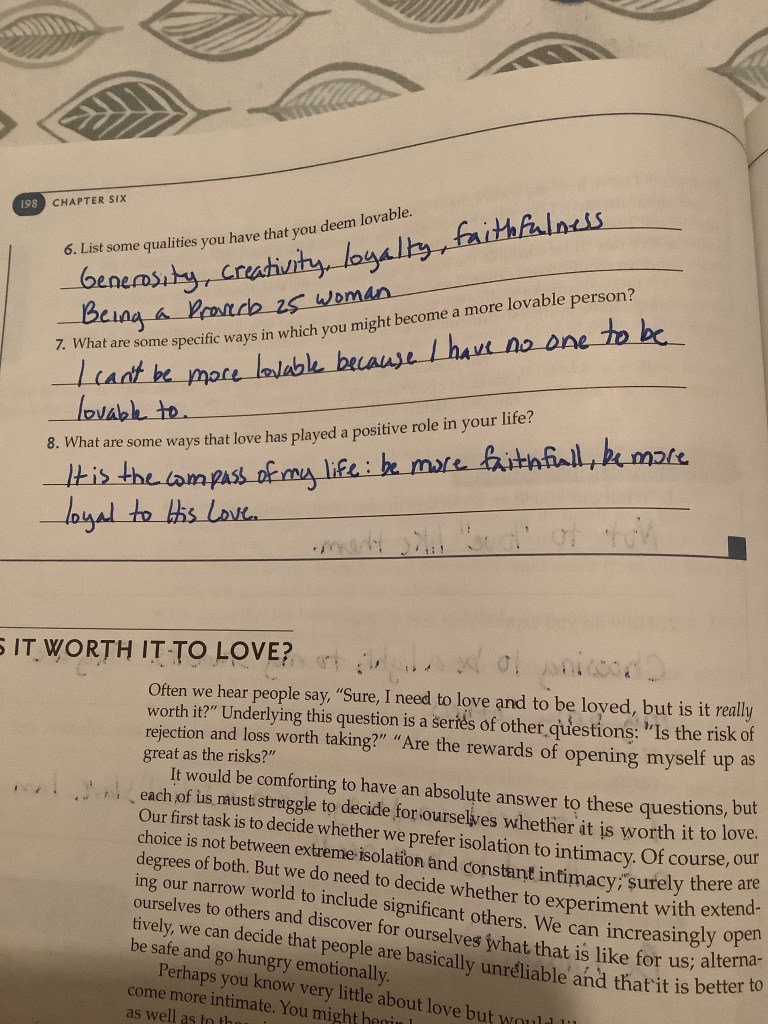 198 CHAPTER SIX
6. List some qualities you have that you deem lovable.
Generosity, creativity, loyalty, faithfulness
Being a Proverb 25 woman
7. What are some specific ways in which you might become a more lovable person?
I can't be more lovable because I have no one to be
lovable to.
8. What are some ways that love has played a positive role in your life?
It is the compass of my life: be more faithfull, be more
loyal to His Love.
Not to "love" like them.
S IT WORTH IT TO LOVE?
Often we hear people say, "Sure, I need to love and to be loved, but is it really
worth it?" Underlying this question is a series of other questions: "Is the risk of
rejection and loss worth taking?" "Are the rewards of opening myself up as
great as the risks?"
It would be comforting to have an absolute answer to these questions, but
each of us must struggle to decide for ourselves whether it is worth it to love.
Our first task is to decide whether we prefer isolation to intimacy. Of course, our
choice is not between extreme isolation and constant intimacy; surely there are
degrees of both. But we do need to decide whether to experiment with extend-
ing our narrow world to include significant others. We can increasingly open
ourselves to others and discover for ourselves what that is like for us; alterna-
tively, we can decide that people are basically unreliable and that it is better to
be safe and go hungry emotionally.
Perhaps you know very little about love but
come more intimate. You might
as well as to